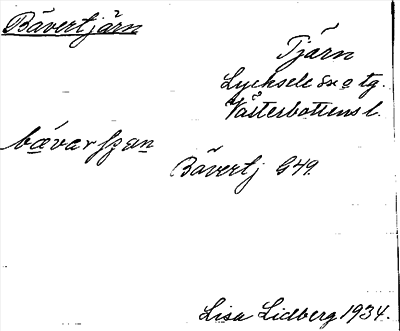 Bävertjärn
Tjärn
Lycksele sn o tg.
Västerbottens l.
Bävertj G49.
Lisa Lidberg 1934.